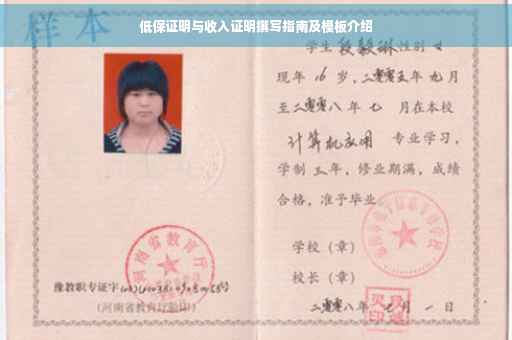 低保证明与收入证明撰写指南及模板介绍
样本
学生段毅琳性别女
现年16岁,二零零五年九月
至二零零八年七月在本校
计算机应用 专业学习,
学制三年,修业期满,成绩
合格,准予毕业
学校(章)
校长(章)
二零零八年七月一日
河南省教育厅
豫教职专证字
(河南省教育厅验印)